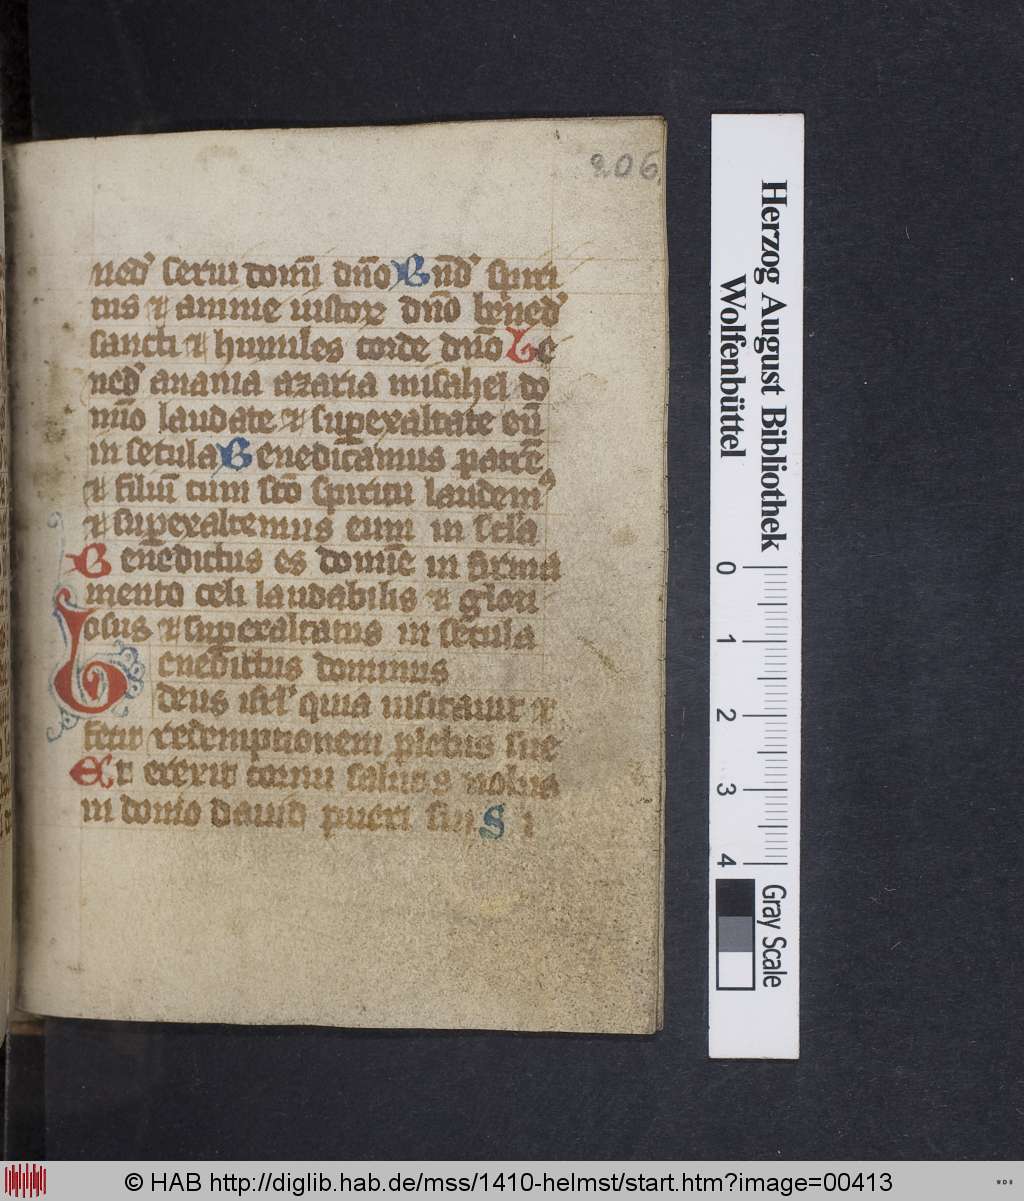 206
ned' serui domini dn̄o Bn̄d' spiri
tus ⁊ anime iustoꝝ dn̄o bened'
sancti ⁊ humiles corde dn̄o Be
ned' anania azaria misahel do
mīo laudate ⁊ suꝑexaltate eū
in secula Benedicamus patrē
⁊ filiū cum sc̄o spiritu laudem⁹
⁊ suꝑexaltemus eum in sc̄la
Benedictus es domīe in firma
mento celi laudabilis ⁊ glori
osus ⁊ suꝑexaltatus in secula
Benedictus dominus
deus isrl' quia uisitauit ⁊
fecit redemptionem plebis sue
Et erexit cornu salutis nobis
in domo dauid pueri sui S i
Herzog August Bibliothek
Wolfenbüttel
0 1 2 3 4
Gray Scale
© HAB http://diglib.hab.de/mss/1410-helmst/start.htm?image=00413